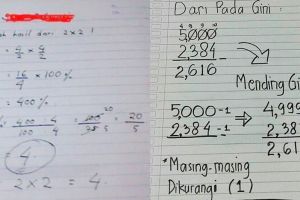 hasil dari 2 x 2 !
= 4/2 x 4/2
= 16/4 x 100 %
= 400 %
400 : 4
100 : 4
20
5
= 4
2 x 2 = 4
Dari Pada Gini :
5,000
2,384
2,616
Mending Gi
5,000 -1
2,384 -1
4,999
2,38
2,61
*Masing-masing
Dikurangi (1)